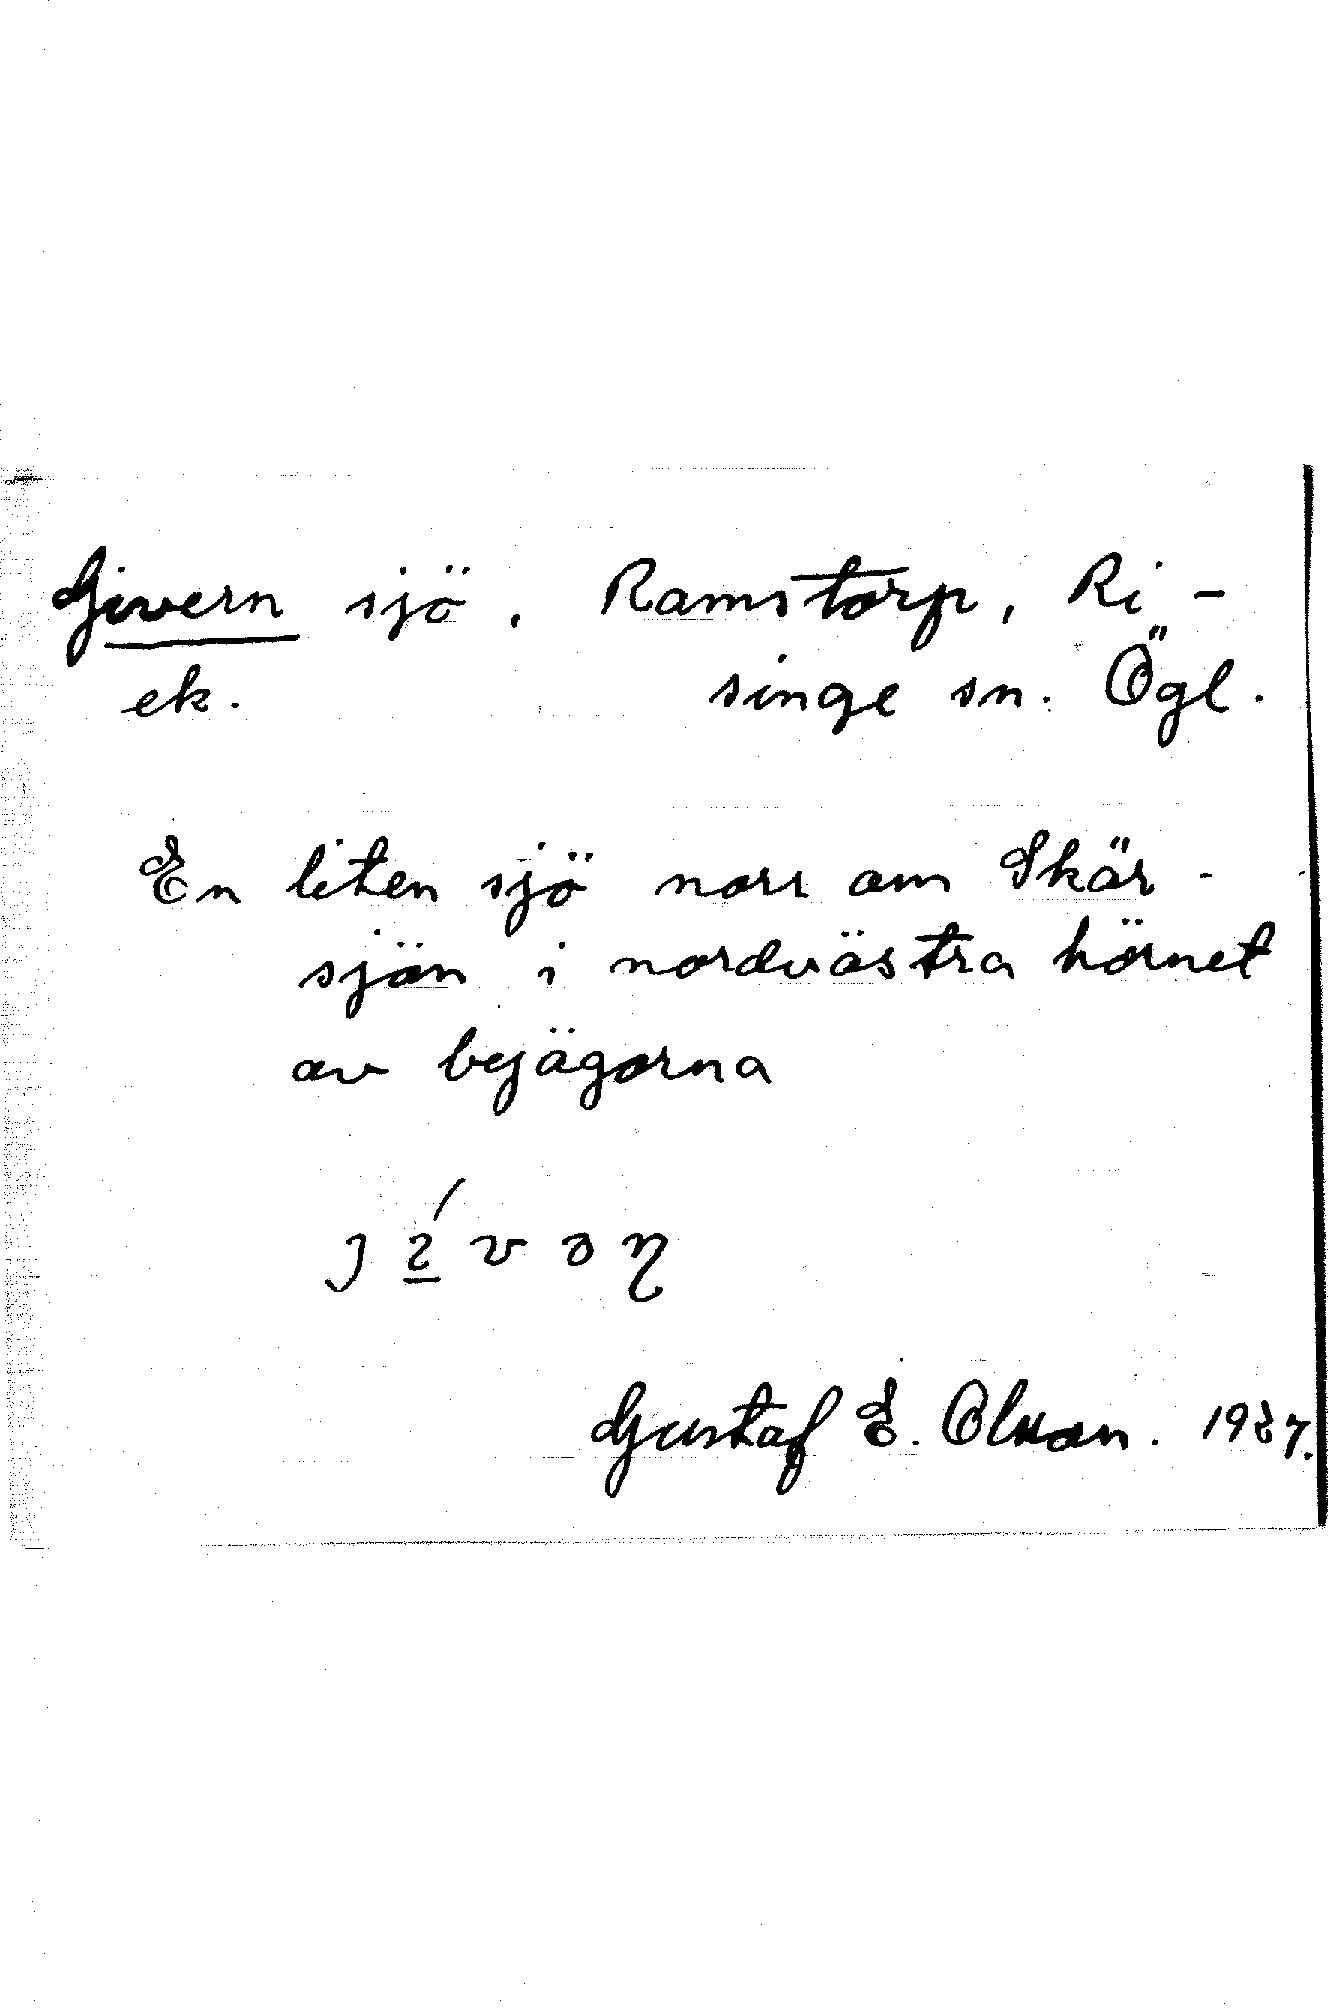 Givern sjö, Ramstorp, Ri-
ek. singe sn. Ögl.
En liten sjö norr om Skär-
sjön i nordvästra hörnet
av bejägorna
Gustaf E. Olsson. 1927.